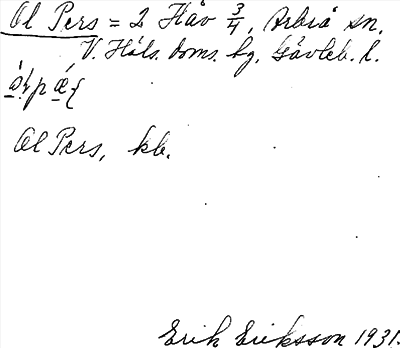 Ol Pers = 2 Håv 3/4, Arbrå sn.
V. Häls. doms. hg. Gävleb. l.
Ol Pers, kb.
Erik Eriksson 1931.